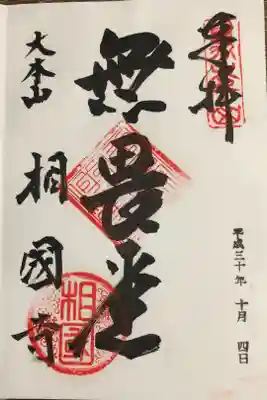 奉拝
平成三十年 十月 四日
無畏堂
大本山 相國寺
相國